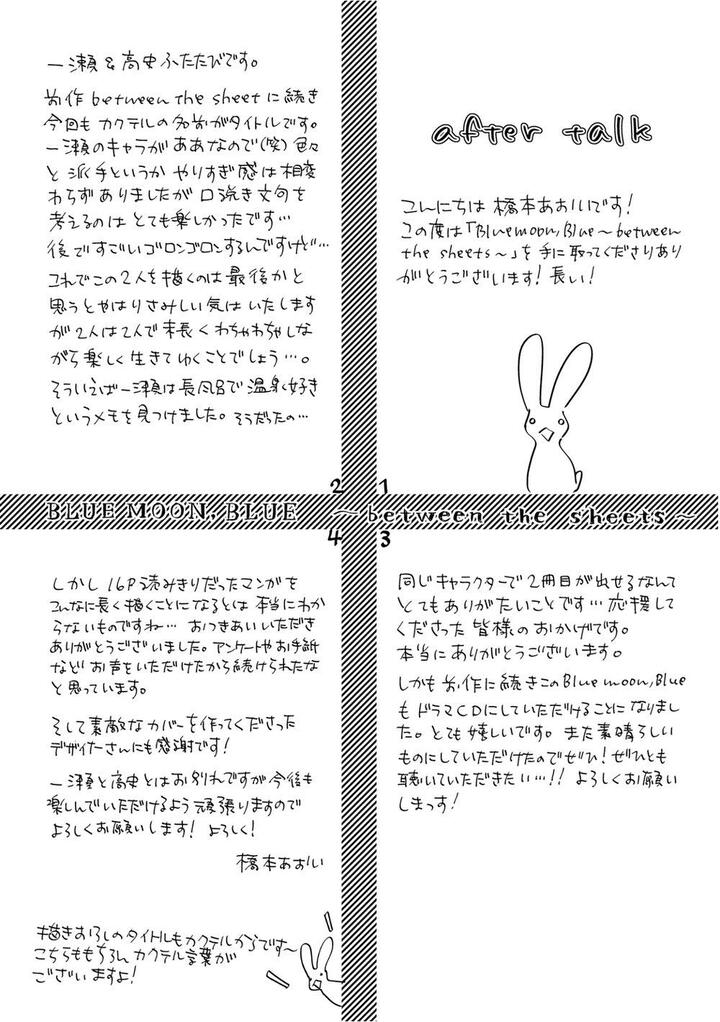 after talk
こんにちは 橋本あおいです!
この度は「Bluemoon, Blue～between
the sheets～」を手に取ってくださりあり
がとうございます! 長い!
1
2
一瀬&高史ふたたびです。
前作between the sheetに続き
今回もカクテルの名前がタイトルです。
一瀬のキャラがああなので(笑)色々
と派手というかやりすぎ感は相変
わらずありましたが口説き文句を
考えるのはとても楽しかったです…
後ですごいゴロンゴロンするんですけど…
これでこの2人を描くのは最後かと
思うとやはりさみしい気はいたします
が2人は2人で末長くわちゃわちゃしな
がら楽しく生きてゆくことでしょう…。
そういえば一瀬は長風呂で温泉好き
というメモを見つけました。そうだったの…
BLUE MOON, BLUE ～between the sheets～
3
同じキャラクターで2冊目が出せるなんて
とてもありがたいことです…応援して
くださった皆様のおかげです。
本当にありがとうございます。
しかも前作に続きこのBlue moon, Blue
もドラマCDにしていただけることになりまし
た。とても嬉しいです。また素晴らしい
ものにしていただけたのでぜひ!ぜひとも
聴いていただきたい…!! よろしくお願い
しまっす!
4
しかし16P読みきりだったマンガを
こんなに長く描くことになるとは本当にわか
らないものですね… おつきあいいただき
ありがとうございました。アンケートやお手紙
などお声をいただけたから続けられたな
と思っています。
そして素敵なカバーを作ってくださった
デザイナーさんにも感謝です!
一瀬と高史とはお別れですが今後も
楽しんでいただけるよう頑張りますので
よろしくお願いします! よろしく!
橋本あおい
描きおろしのタイトルもカクテルからです～
こちらももちろんカクテル言葉が
ございますよ!